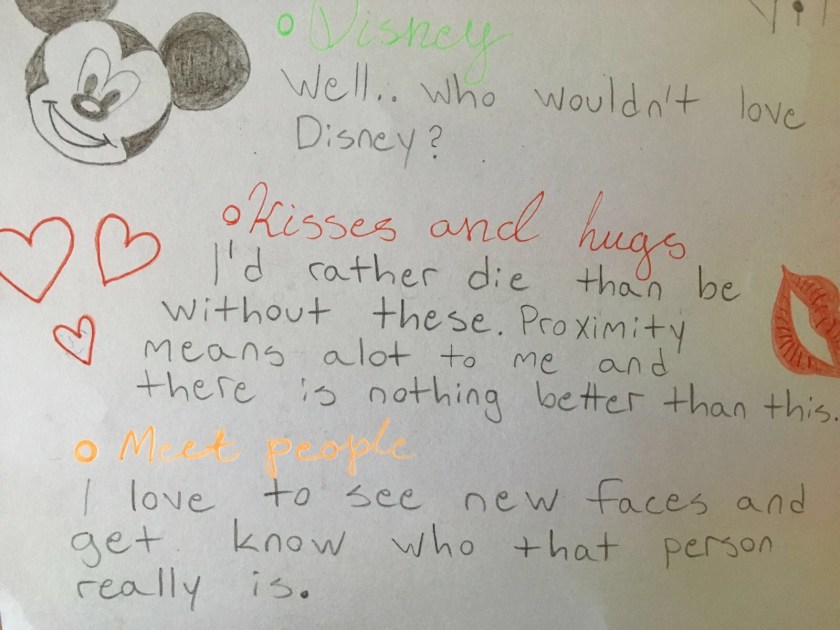 Disney
Well.. who wouldn't love
Disney?
Kisses and hugs
I'd rather die than be
without these. Proximity
means alot to me and
there is nothing better than this.
Meet people
I love to see new faces and
get know who that person
really is.